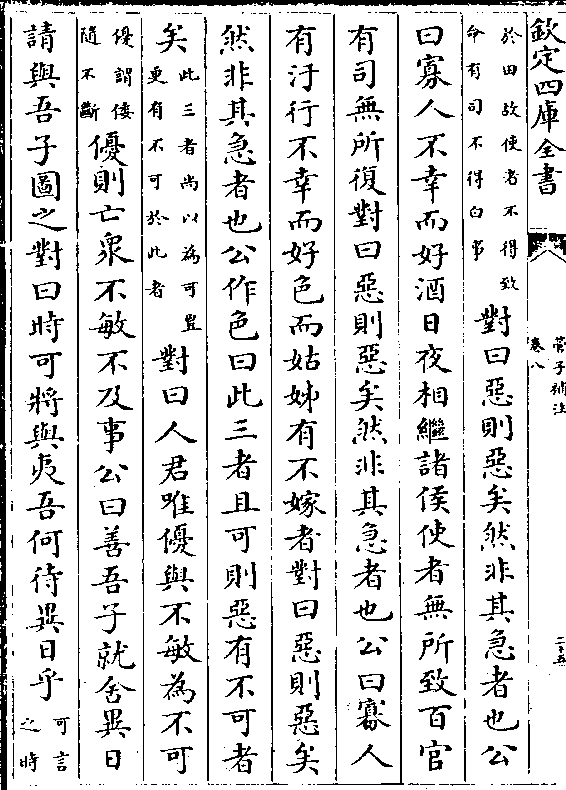 欽定四庫全書
管子補注
卷八
二十五
於田故使者不得致
命有司不得白事
對曰惡則惡矣然非其急者也公
曰寡人不幸而好酒日夜相繼諸侯使者無所致百官
有司無所復對曰惡則惡矣然非其急者也公曰寡人
有汙行不幸而好色而姑姊有不嫁者對曰惡則惡矣
然非其急者也公作色曰此三者且可則惡有不可者
矣
此三者尚以為可豈
更有不可於此者
對曰人君唯優與不敏為不可
優謂倭
隨不斷
優則亡衆不敏不及事公曰善吾子就舍異日
請與吾子圖之對曰時可將與夷吾何待異日乎
可言
之時